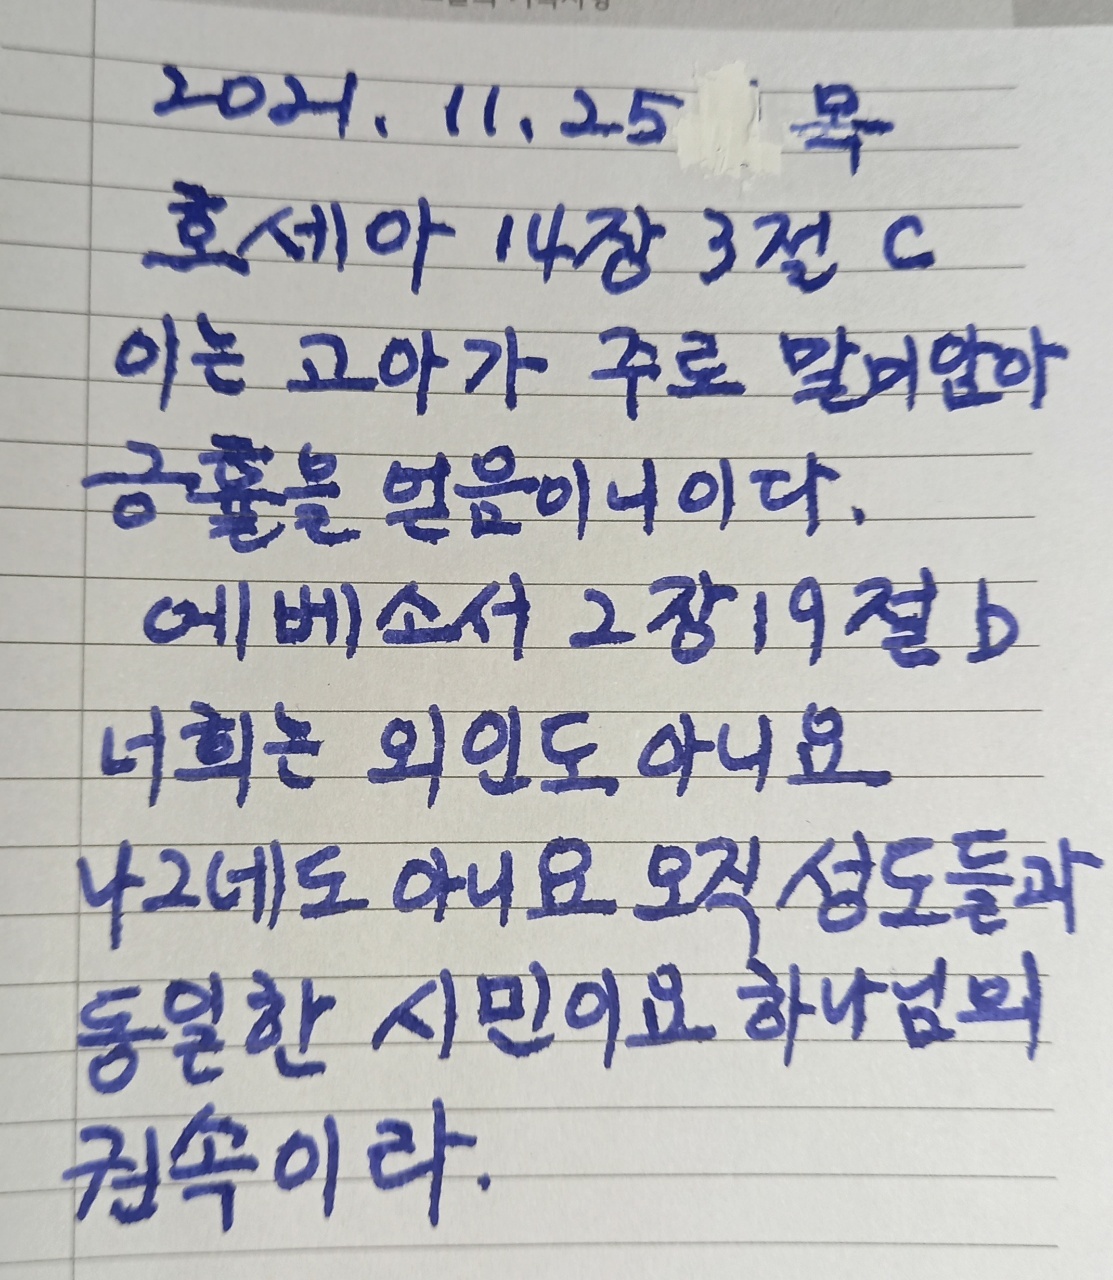 2021. 11. 25 목
호세아 14장 3절 c
이는 고아가 주로 말미암아
긍휼을 얻음이니이다.
에베소서 2장 19절 b
너희는 외인도 아니요
나그네도 아니요 오직 성도들과
동일한 시민이요 하나님의
권속이라.